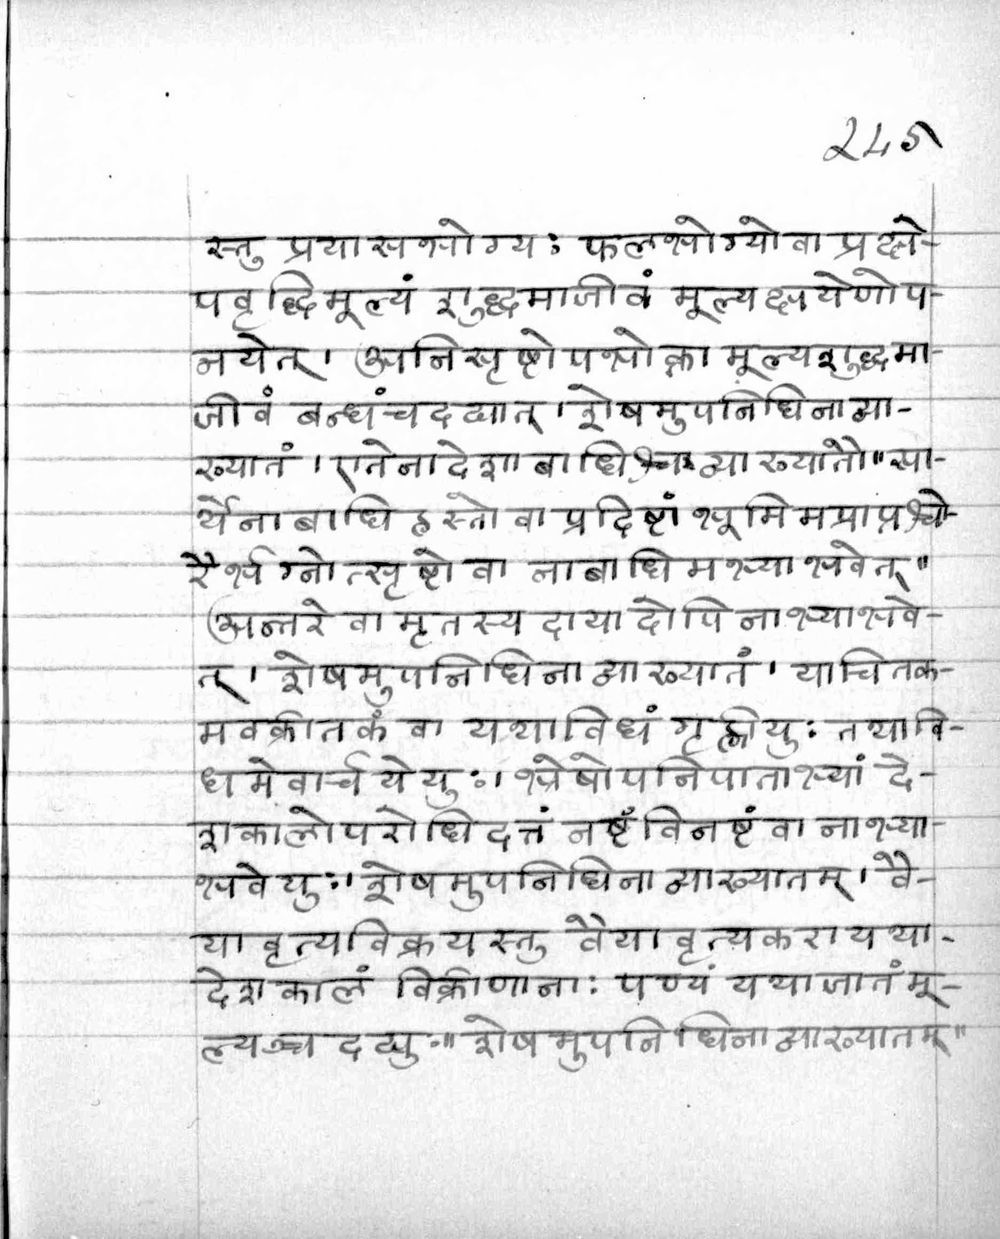 245
स्तु प्रयासभोग्यः फलभोग्यो वा प्रक्षे-
पवृद्धिमूल्यं शुद्धमाजीवं मूल्यक्षयेणोप-
नयेत् । अनिसृष्टोपभोक्ता मूल्यशुद्धमा-
जीवं बन्धंच दद्यात् । शेषमुपनिधिना व्या-
ख्यातं । एतेनादेशाबाधिश्च व्याख्यातौ ॥ सा-
र्थेनाबाधिहस्तो वा प्रदिष्टां भूमिमप्राप्तश्चो-
रैर्भग्नोत्सृष्टो वा नाबाधिमभ्याभवेत् ॥
अन्तरे वा मृतस्य दायादोपि नाभ्याभवे-
त् । शेषमुपनिधिना व्याख्यातं । याचितक-
मवक्रीतकं वा यथाविधं गृह्णीयुः तथावि-
धमेवार्चयेयुः । भ्रेषोपनिपाताभ्यां दे-
शकालोपरोधि दत्तं नष्टं विनष्टं वा नाभ्या-
भवेयुः । शेषमुपनिधिना व्याख्यातम् । वै-
यावृत्यविक्रयस्तु वैयावृत्यकरा यथा-
देशकालं विक्रीणानाः पण्यं यथाजातं मू-
ल्यञ्च दद्युः ॥ शेषमुपनिधिना व्याख्यातम् ॥